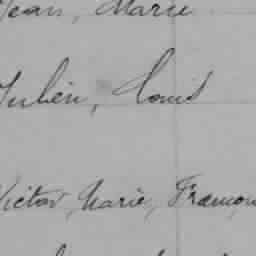 Jean, Marie
Julien, Louis
Victor, Marie,